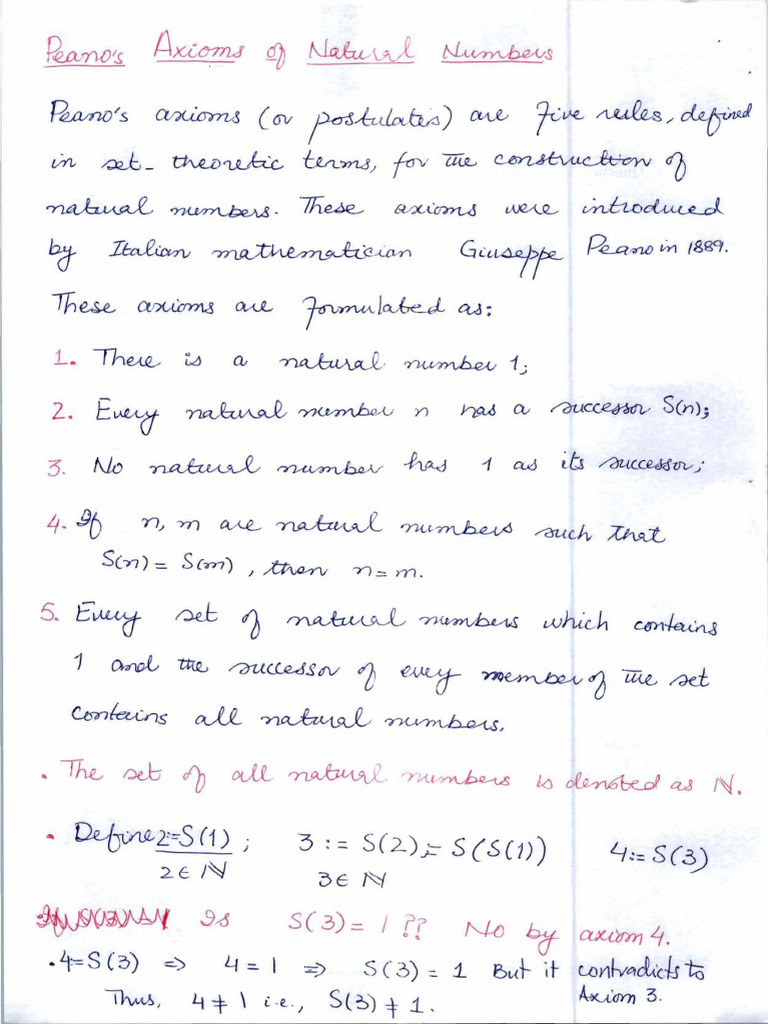 Peano's Axioms of Natural Numbers
Peano's axioms (or postulates) are five rules, defined
in set-theoretic terms, for the construction of
natural numbers. These axioms were introduced
by Italian mathematician Giuseppe Peano in 1889.
These axioms are formulated as:
1. There is a natural number 1;
2. Every natural number n has a successor S(n);
3. No natural number has 1 as its successor;
4. If n, m are natural numbers such that
S(n) = S(m), then n = m.
5. Every set of natural numbers which contains
1 and the successor of every member of the set
contains all natural numbers.
• The set of all natural numbers is denoted as ℕ.
• Define 2:=S(1); 3 := S(2) = S(S(1)) 4:= S(3)
2 ∈ ℕ 3 ∈ ℕ
Is S(3) = 1 ?? No by axiom 4.
• 4=S(3) ⇒ 4 = 1 ⇒ S(3) = 1 But it contradicts to
Axiom 3.
Thus, 4 ≠ 1 i.e., S(3) ≠ 1.